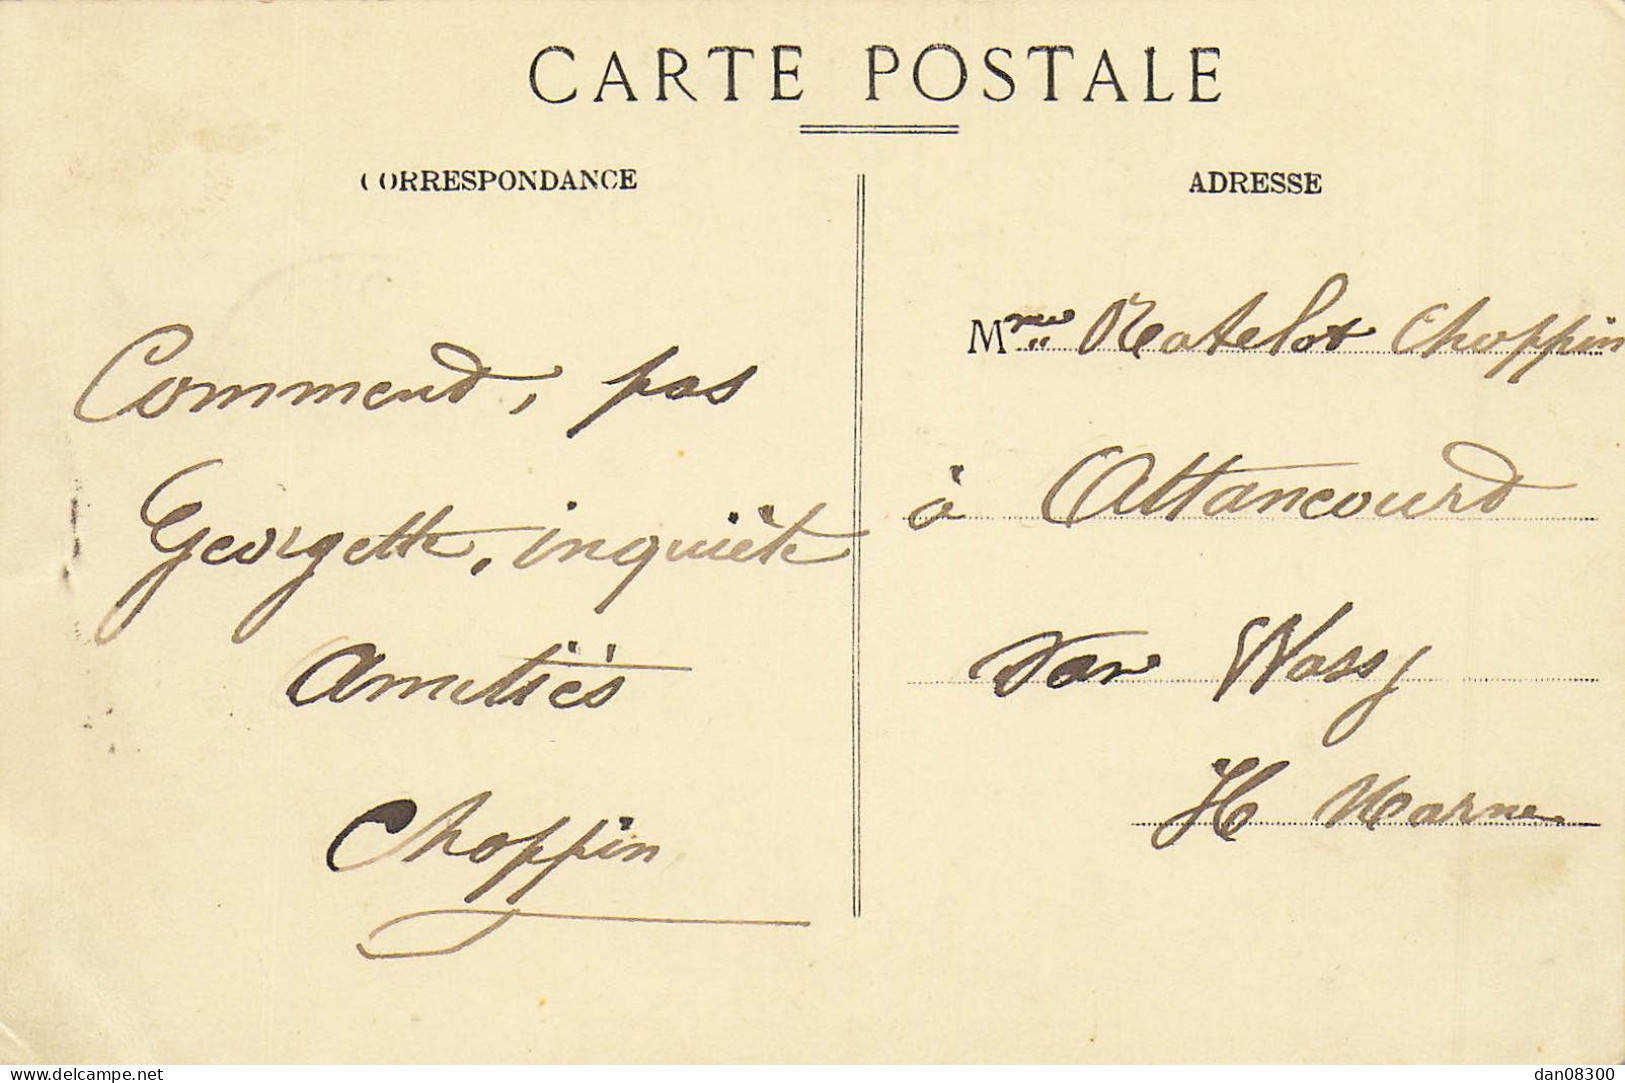 CARTE POSTALE
CORRESPONDANCE
ADRESSE
Commend, pas
Georgette, inquiète
Amitiés
Choppin
Mme Matelot Choppin
à Attancourd
par Wassy
H Marne
www.delcampe.net
dan08300